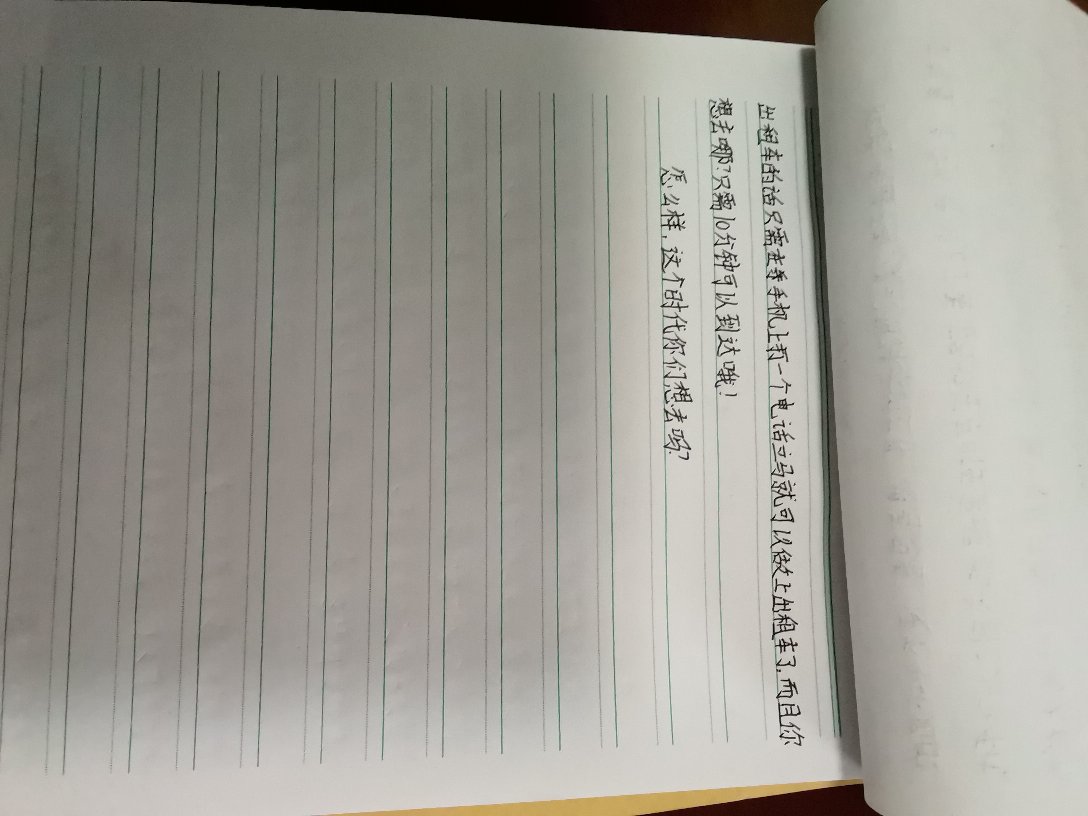 出租车的话只需在手机上打一个电话立马就可以做上出租车了,而且你
想去哪?只需10分钟可以到达哦!
怎么样,这个时代你们想去吗?